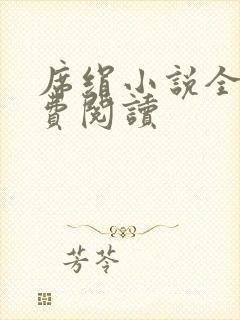 席絹小說全
費閱讀
芳苓